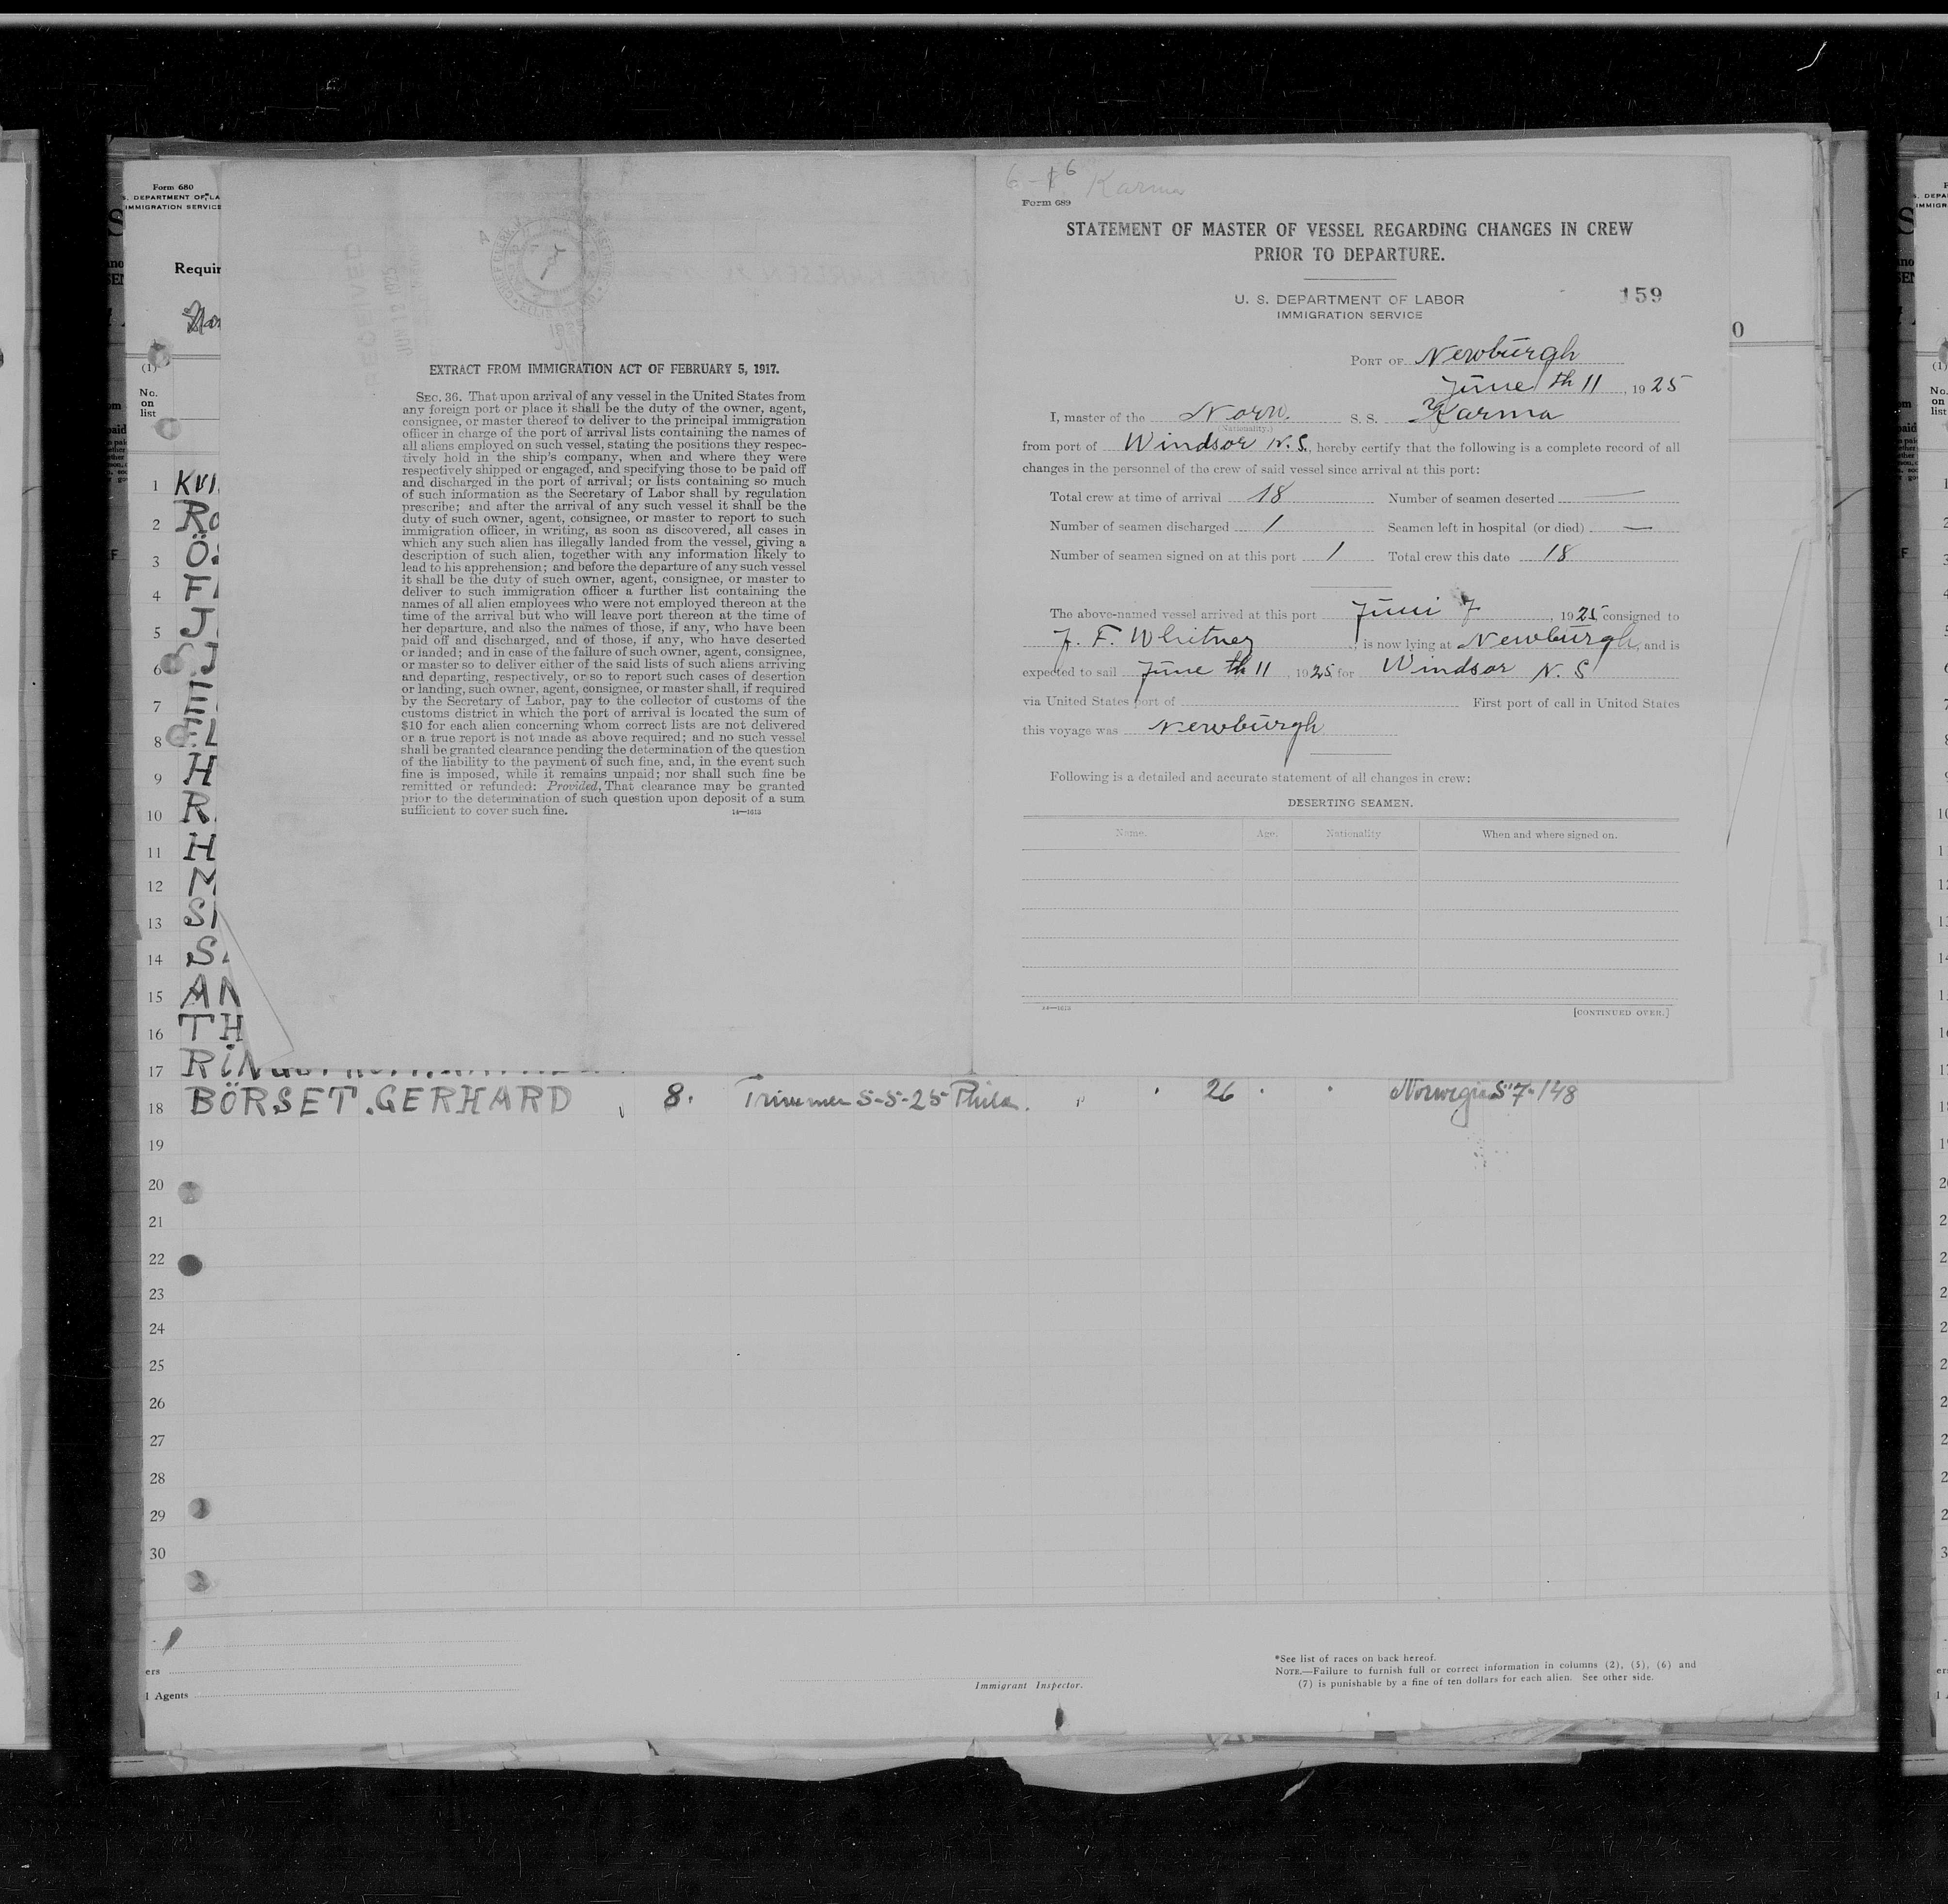 Form 680
S. DEPARTMENT OF LA
IMMIGRATION SERVICE
Requir
(1)
No.
on
list
1 KVI
2 RO
3 Ö
4 F
5 J.
6 J
7 E
8 EL
9 H
10 R
11 H
12 N
13 S
14 S.
15 AN
16 TH
17 RIN
18 BÖRSET. GERHARD 8. Trimmer 5-5-25 Phila. " 26 Norwegia 5'7" 148
19
20
21
22
23
24
25
26
27
28
29
30
ers
l Agents
Immigrant Inspector.
*See list of races on back hereof.
NOTE.—Failure to furnish full or correct information in columns (2), (5), (6) and
(7) is punishable by a fine of ten dollars for each alien. See other side.
RECEIVED
JUN 12 1925
EXTRACT FROM IMMIGRATION ACT OF FEBRUARY 5, 1917.
SEC. 36. That upon arrival of any vessel in the United States from
any foreign port or place it shall be the duty of the owner, agent,
consignee, or master thereof to deliver to the principal immigration
officer in charge of the port of arrival lists containing the names of
all aliens employed on such vessel, stating the positions they respec-
tively hold in the ship's company, when and where they were
respectively shipped or engaged, and specifying those to be paid off
and discharged in the port of arrival; or lists containing so much
of such information as the Secretary of Labor shall by regulation
prescribe; and after the arrival of any such vessel it shall be the
duty of such owner, agent, consignee, or master to report to such
immigration officer, in writing, as soon as discovered, all cases in
which any such alien has illegally landed from the vessel, giving a
description of such alien, together with any information likely to
lead to his apprehension; and before the departure of any such vessel
it shall be the duty of such owner, agent, consignee, or master to
deliver to such immigration officer a further list containing the
names of all alien employees who were not employed thereon at the
time of the arrival but who will leave port thereon at the time of
her departure, and also the names of those, if any, who have been
paid off and discharged, and of those, if any, who have deserted
or landed; and in case of the failure of such owner, agent, consignee,
or master so to deliver either of the said lists of such aliens arriving
and departing, respectively, or so to report such cases of desertion
or landing, such owner, agent, consignee, or master shall, if required
by the Secretary of Labor, pay to the collector of customs of the
customs district in which the port of arrival is located the sum of
$10 for each alien concerning whom correct lists are not delivered
or a true report is not made as above required; and no such vessel
shall be granted clearance pending the determination of the question
of the liability to the payment of such fine, and, in the event such
fine is imposed, while it remains unpaid; nor shall such fine be
remitted or refunded: Provided, That clearance may be granted
prior to the determination of such question upon deposit of a sum
sufficient to cover such fine. 14—1613
Karma
Form 689
STATEMENT OF MASTER OF VESSEL REGARDING CHANGES IN CREW
PRIOR TO DEPARTURE.
U. S. DEPARTMENT OF LABOR
IMMIGRATION SERVICE
159
PORT OF Newburgh
June th 11, 1925
I, master of the Norw. S. S. Karma
(Nationality.)
from port of Windsor N.S., hereby certify that the following is a complete record of all
changes in the personnel of the crew of said vessel since arrival at this port:
Total crew at time of arrival 18 Number of seamen deserted —
Number of seamen discharged 1 Seamen left in hospital (or died) —
Number of seamen signed on at this port 1 Total crew this date 18
The above-named vessel arrived at this port Juni 7, 1925, consigned to
J. F. Whitney, is now lying at Newburgh, and is
expected to sail June th 11, 1925, for Windsor N. S
via United States port of First port of call in United States
this voyage was Newburgh
Following is a detailed and accurate statement of all changes in crew:
DESERTING SEAMEN.
Name. Age. Nationality When and where signed on.
14—1613 [CONTINUED OVER.]
0